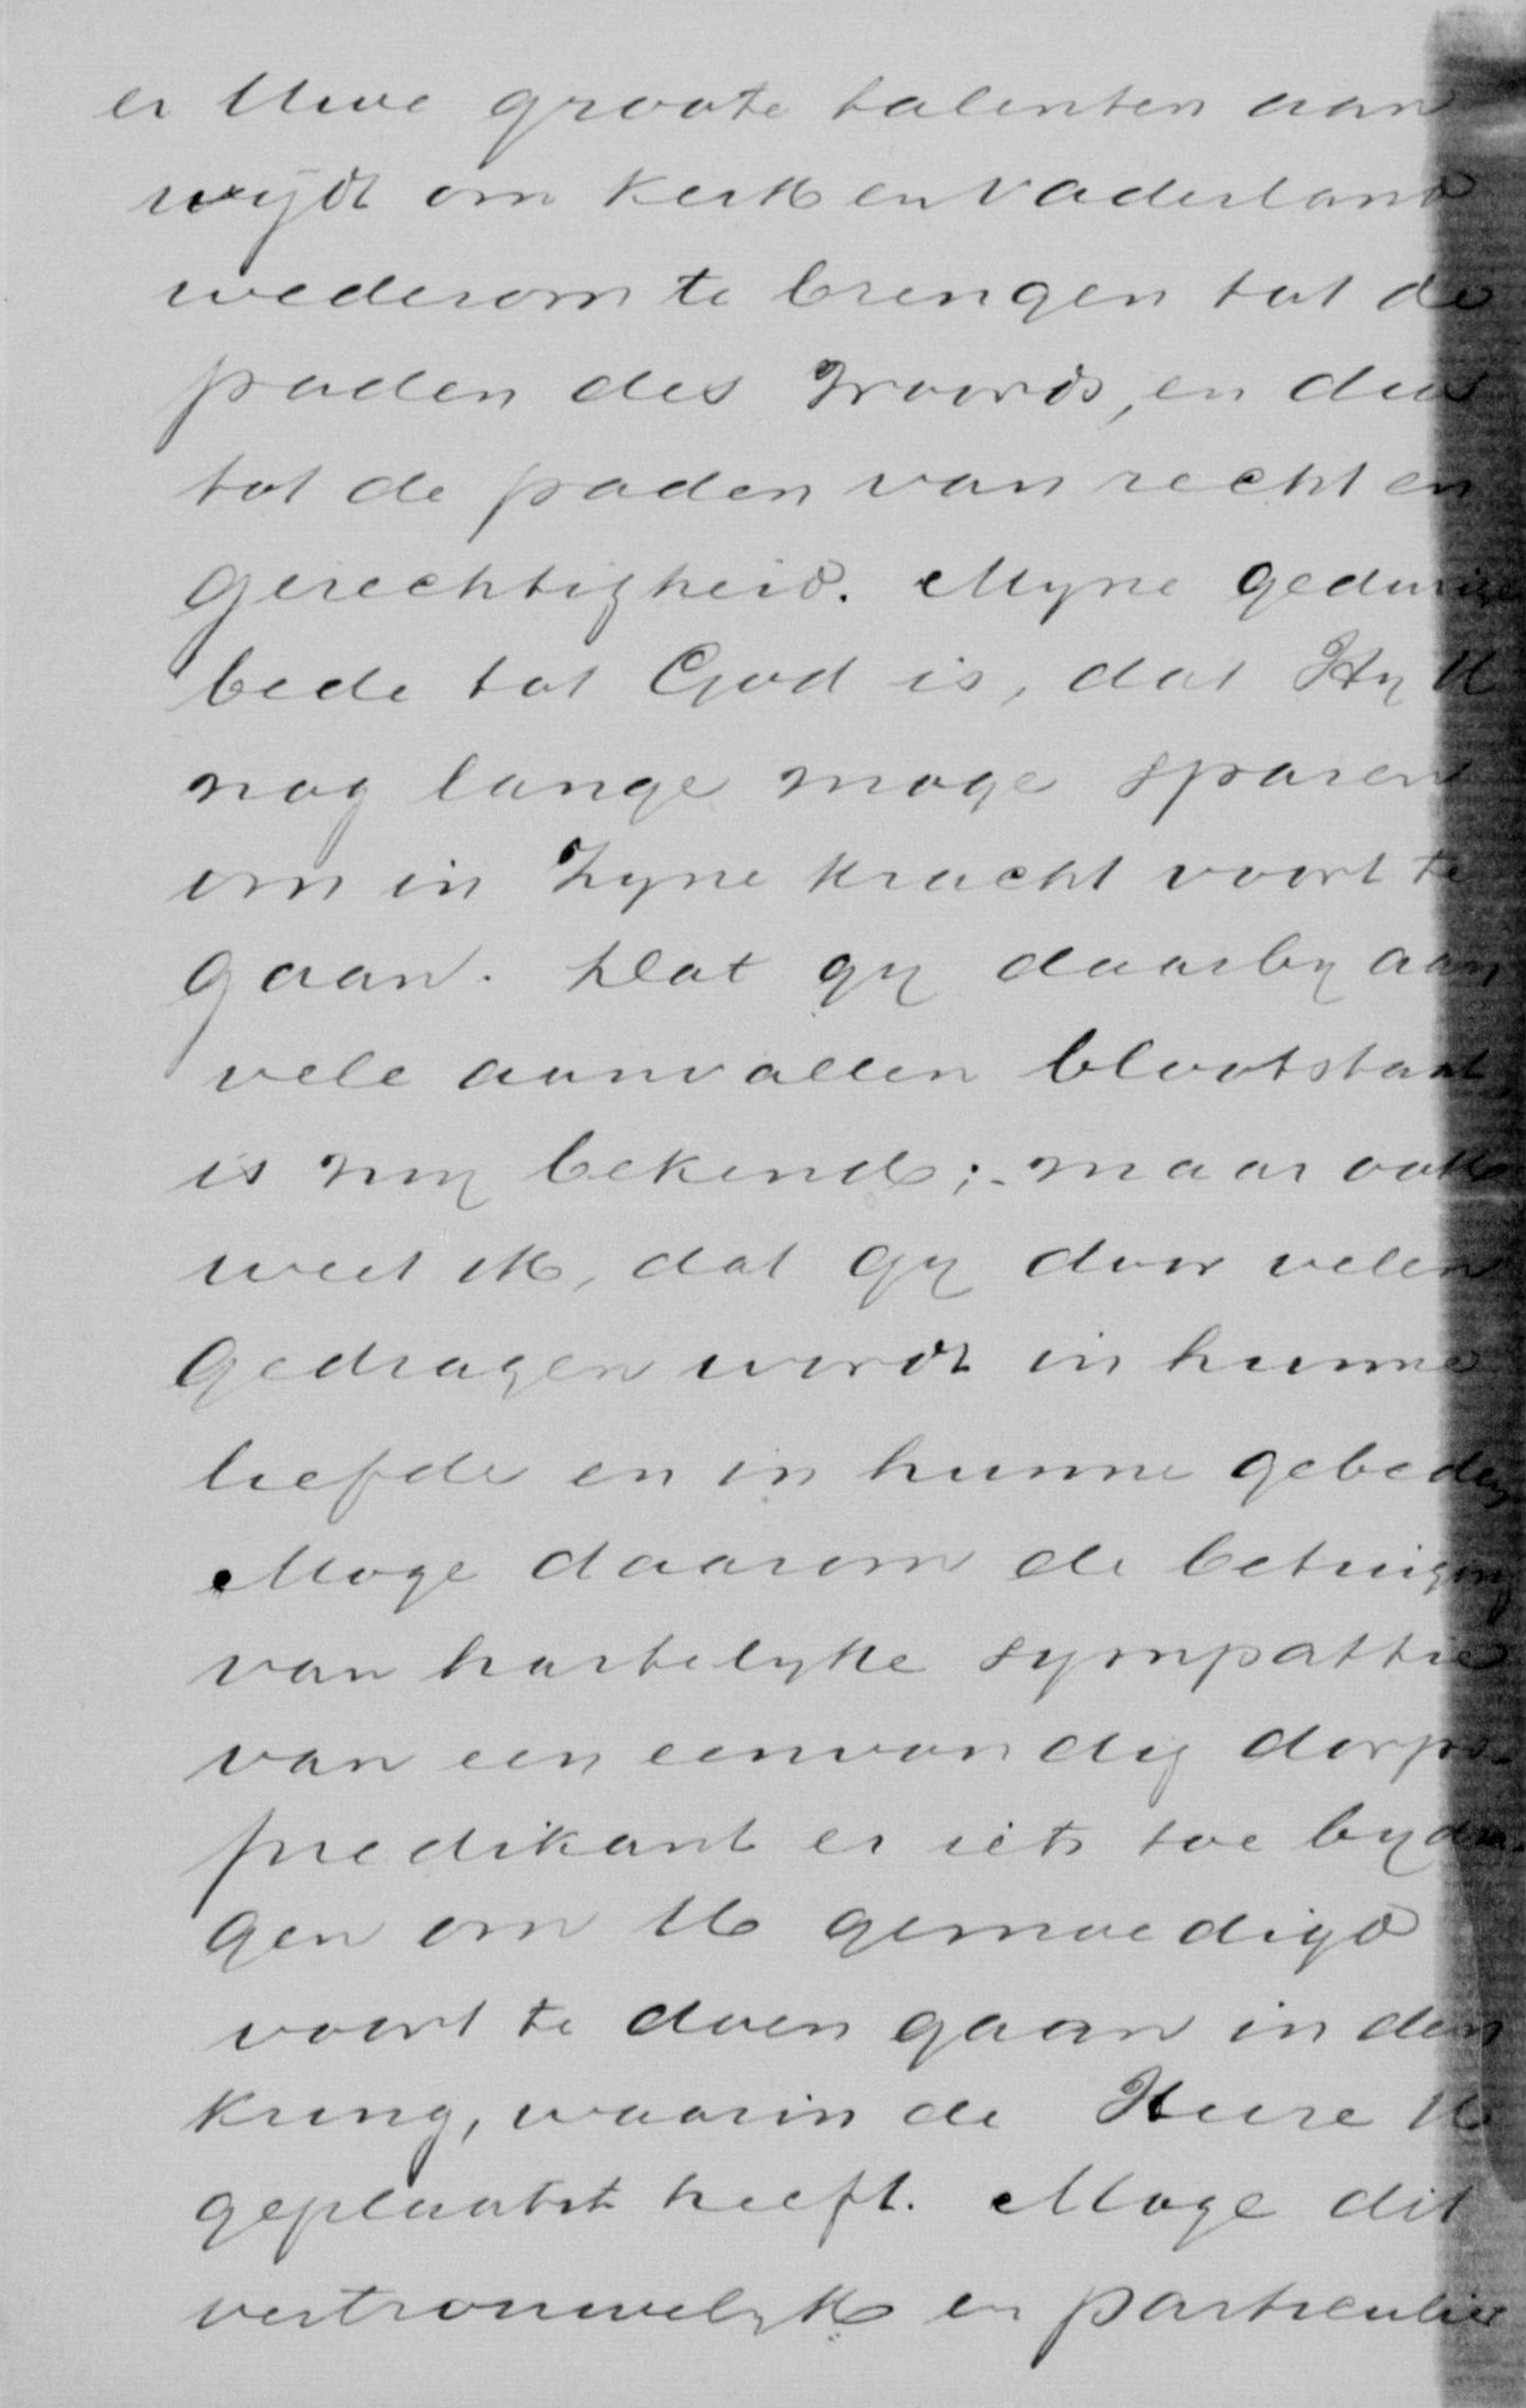 er Uwe groote talenten aan
wijdt om Kerk en Vaderland
wederom te brengen tot de
paden des Woords, en dus
tot de paden van recht en
gerechtigheid. Myne gedurige
bede tot God is, dat Hy U
nog lange moge sparen
om in Zyne kracht voort te
gaan. Dat gy daarby aan
vele aanvallen blootstaat,
is my bekend; - maar ook
weet ik, dat gy door velen
gedragen wordt in hunne
liefde en in hunne gebeden
Moge daarom de betuiging
van hartelyke sympathie
van een eenvoudig dorps-
predikant er iets toe bydra-
gen om U gemoedigd
voort te doen gaan in den
kring, waarin de Heere U
geplaatst heeft. Moge dit
vertrouwelyk en particulier